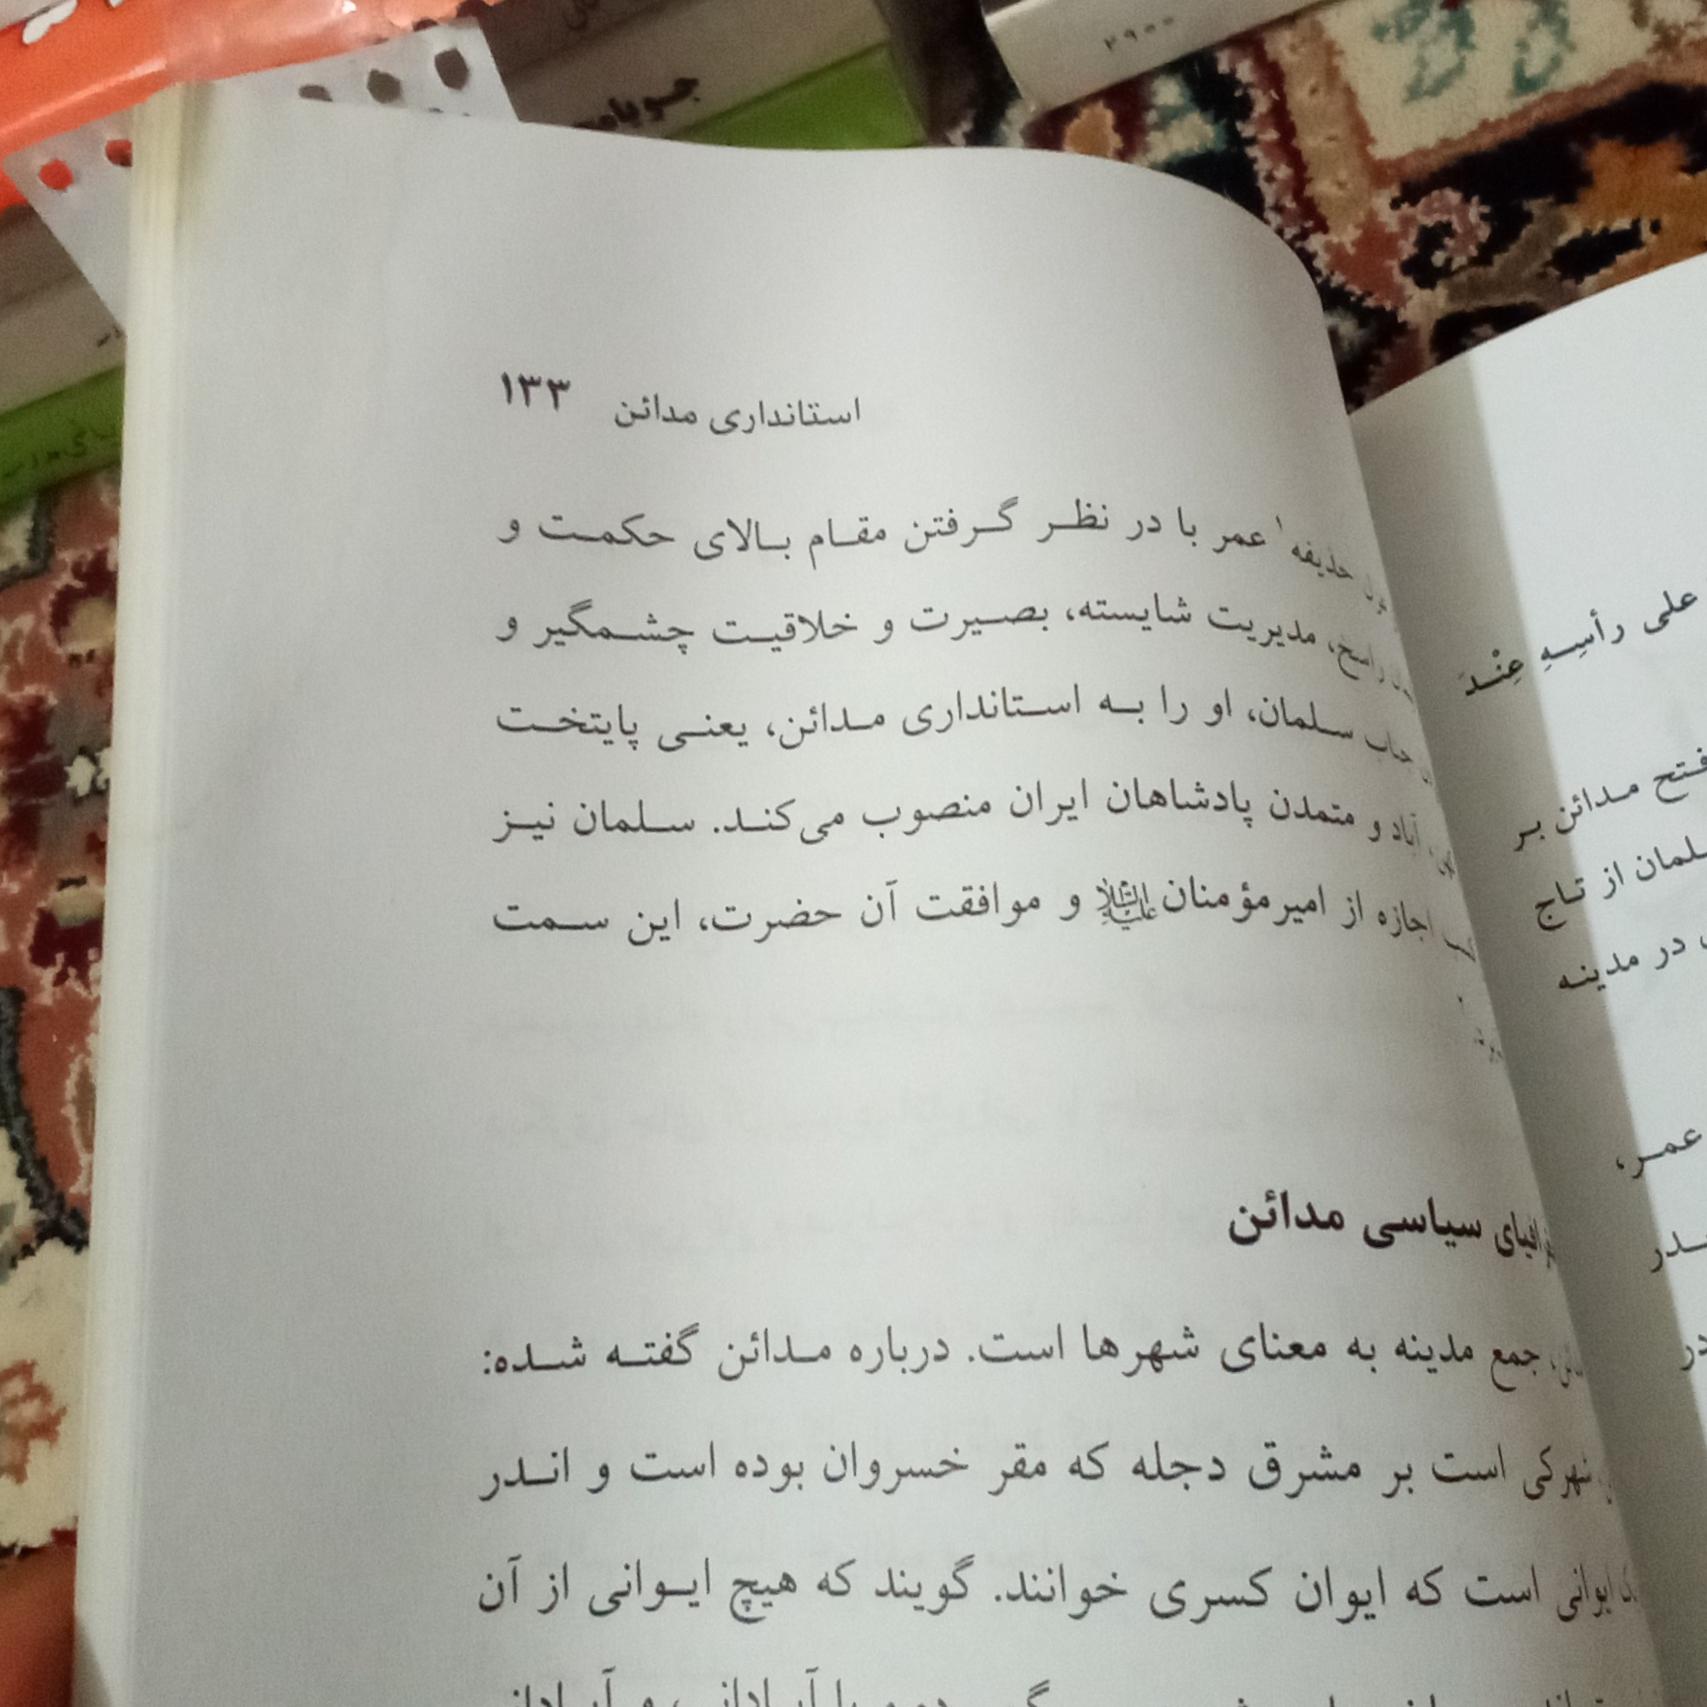 ۲۹۰۰
استانداری مدائن ۱۳۳
حذیفه۱ عمر با در نظر گرفتن مقام بالای حکمت و
راسخ، مدیریت شایسته، بصیرت و خلاقیت چشمگیر و
جناب سلمان، او را به استانداری مدائن، یعنی پایتخت
آباد و متمدن پادشاهان ایران منصوب می‌کند. سلمان نیز
اجازه از امیرمؤمنان علیه‌السلام و موافقت آن حضرت، این سمت
سیاسی مدائن
جمع مدینه به معنای شهرها است. درباره مدائن گفته شده:
شهرکی است بر مشرق دجله که مقر خسروان بوده است و اندر
ایوانی است که ایوان کسری خوانند. گویند که هیچ ایوانی از آن
علی رأسِهِ عِنْدَ
فتح مدائن بر
سلمان از تاج
در مدینه
عمر،